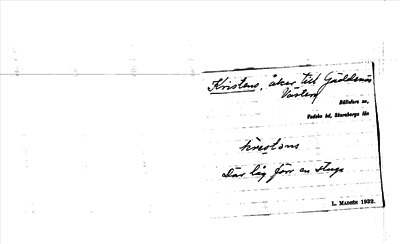 Kristens, åker till Gäddenäs
Västerg
Bällefors sn,
Vadsbo hd, Skaraborgs län
kristens
Där låg förr en stuga
L. MADSÉN 1932.